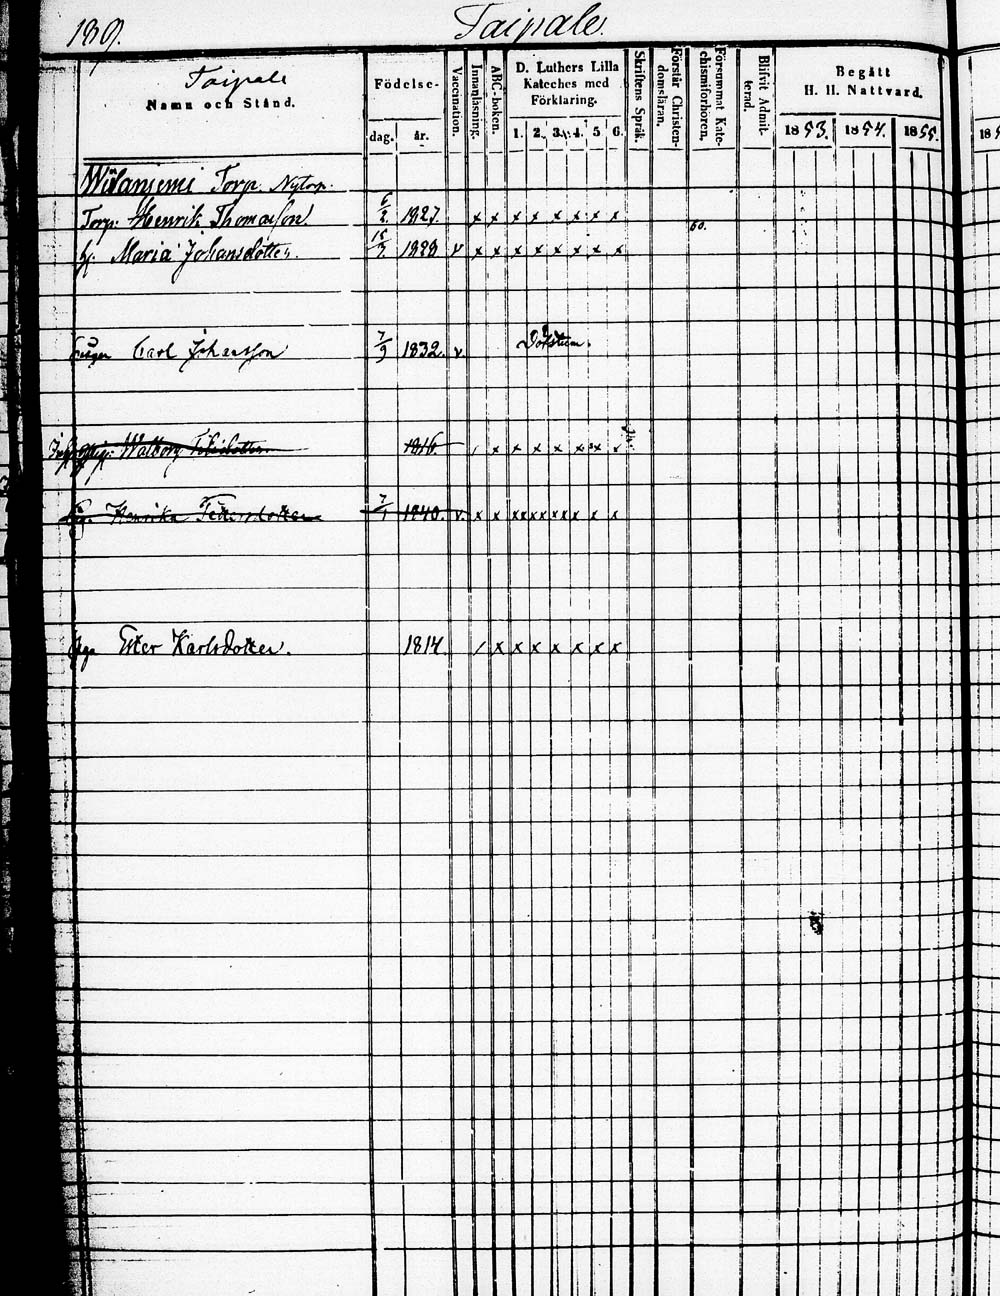 139. Taipale.
Taipale
Namn och Stånd.
Födelse-
dag. år.
Vaccination.
Innanläsning.
ABC-boken.
D. Luthers Lilla
Kateches med
Förklaring.
1. 2. 3. 4. 5 6.
Skriftens Språk.
Förstår Christen-
domsläran.
Försummat Kate-
chismiförhören.
Blifvit Admit-
terad.
Begått
H. H. Nattvard.
1853. 1854. 1855.
Torp. Nytorp.
Torp. Henrik Thomasson 6/2. 1827. x x x x x x x x
60.
h. Maria Johansdotter. 15/7. 1828 v x x x x x x x x
Carl Johansson 7/9 1832. v. Döfstum.
Walborg 1816. / x x x x x x x
Henrika 7/1 1840. v. x x xx xx xx x x x
Ester Karlsdotter. 1814 / x x x x x x x